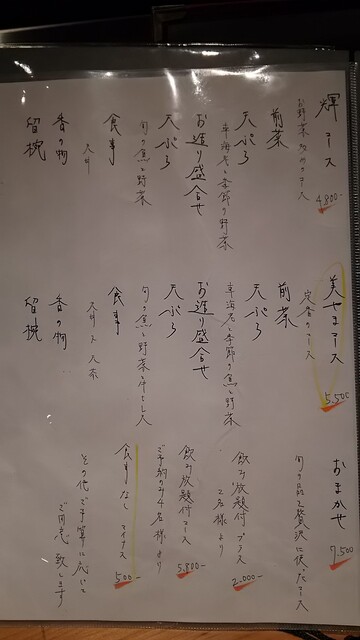 輝コース 4,800-
お野菜のみのコース
前菜
天ぷら
車海老と季節の野菜
お造り盛合せ
天ぷら
旬の魚と野菜
食事
天丼
香の物
留椀
美やまコース 5,500-
定番のコース
前菜
天ぷら
車海老と季節の魚と野菜
お造り盛合せ
天ぷら
旬の魚と野菜と
食事
天丼 天茶
香の物
留椀
おまかせ 7,500
旬の品を贅沢に使ったコース
飲み放題付 プラス 2,000-
2名様より
飲み放題付コース 5,800-
ご予約のみ4名様より
食事なし マイナス 500-
その他ご予算に応じて
ご用意致します